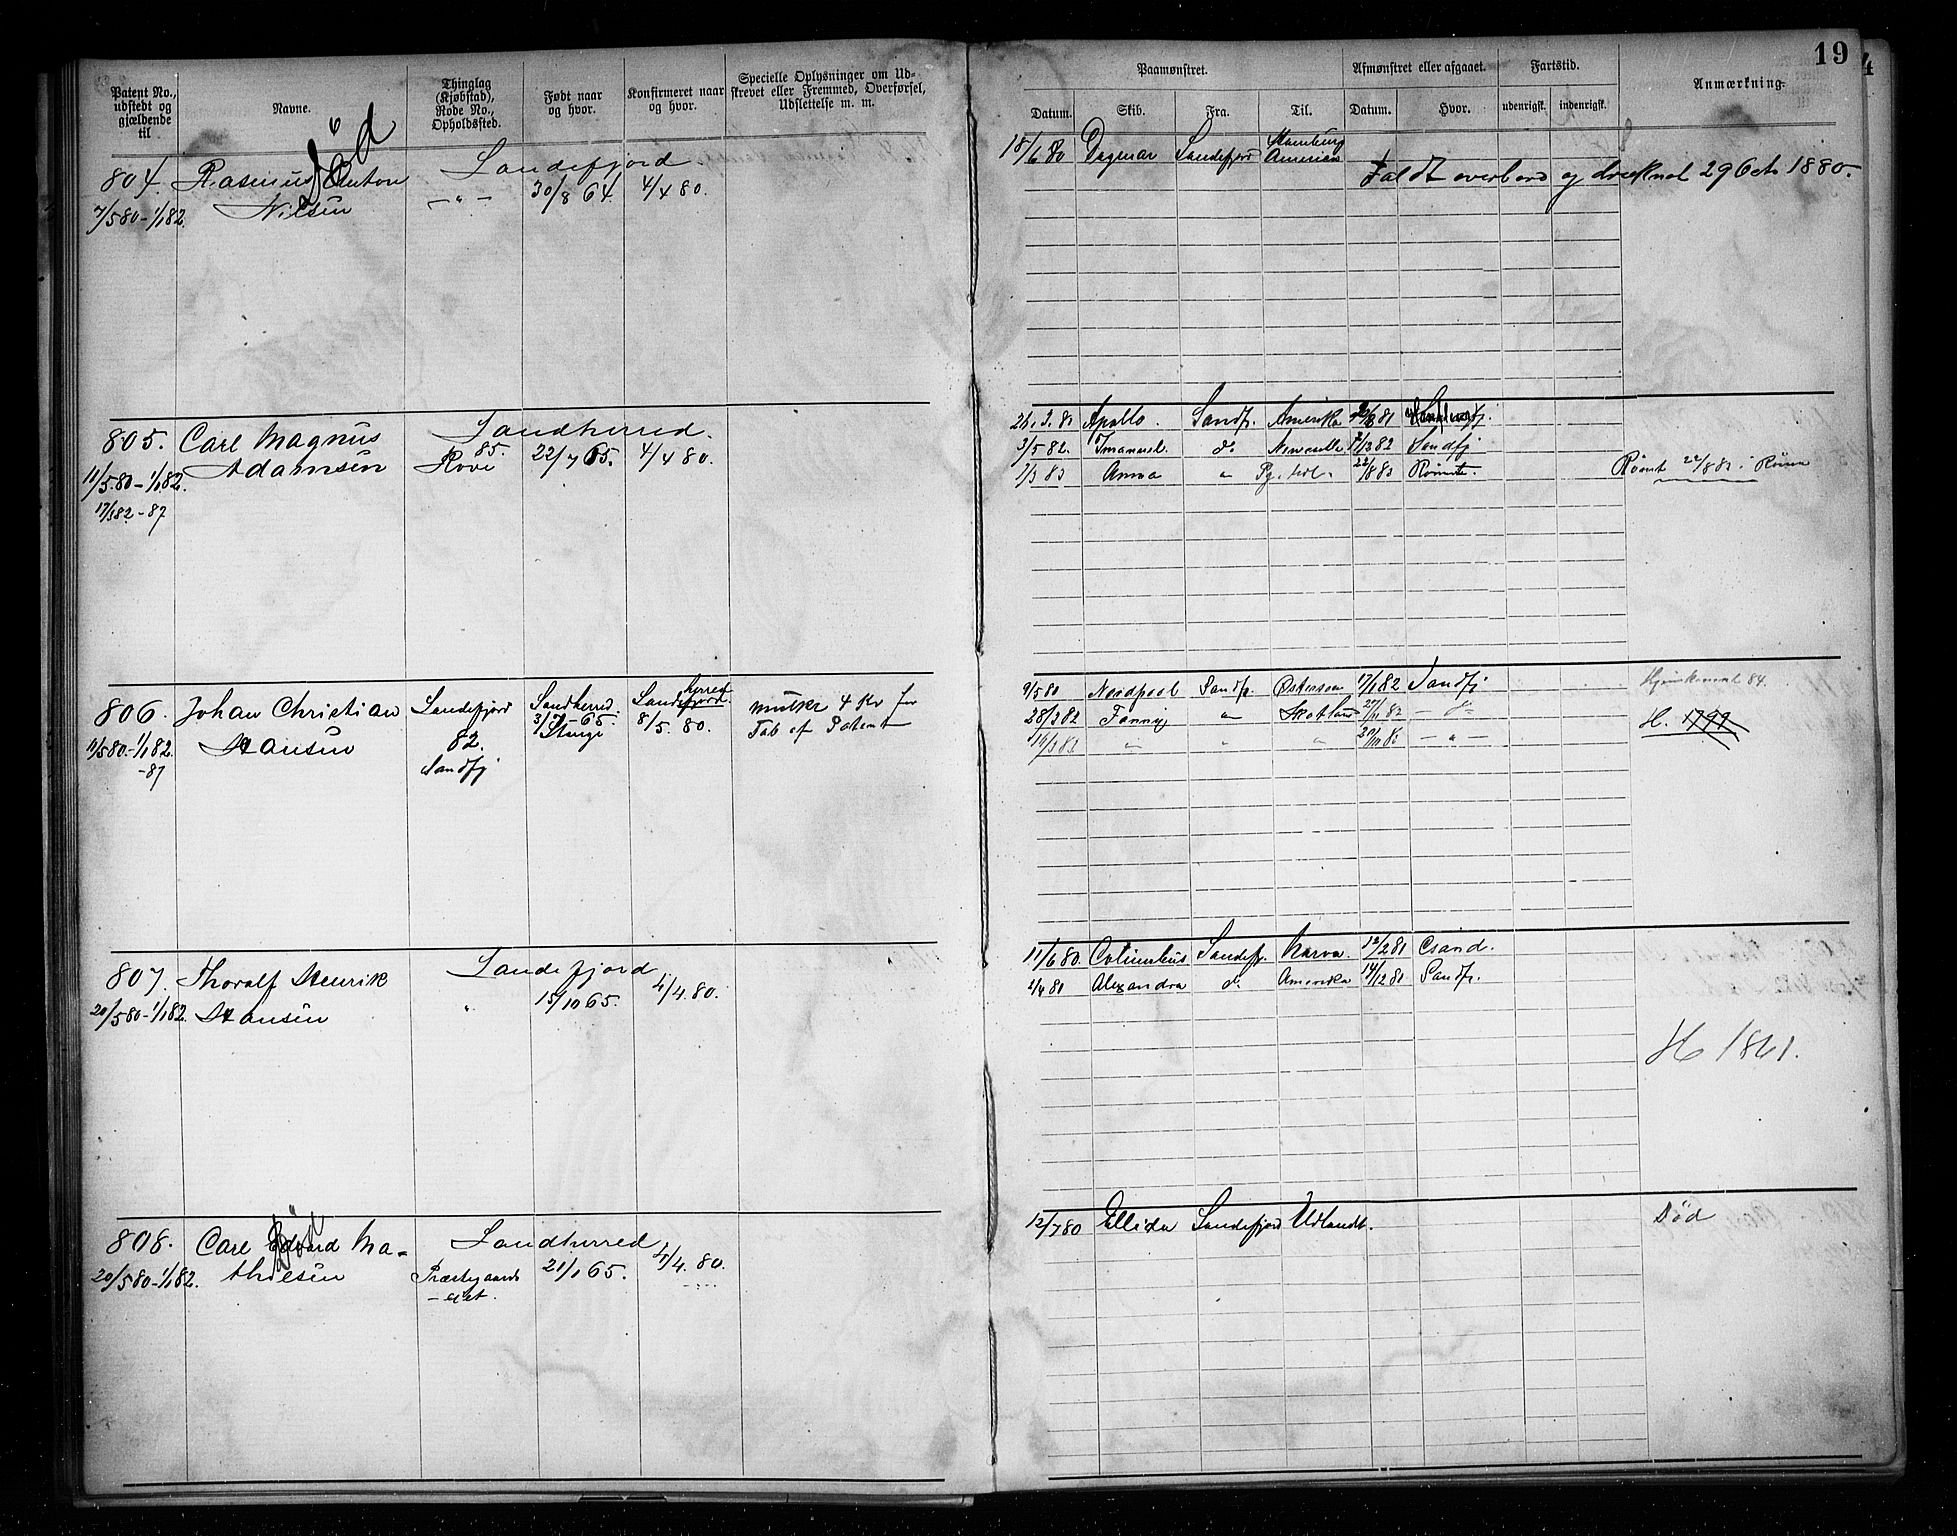 19
Patent No., udstedt og gjældende til
Navne.
Thinglag (Kjøbstad), Rode No., Opholdssted.
Født naar og hvor.
Konfirmeret naar og hvor.
Specielle Oplysninger om Udskrevet eller Fremmed, Overførsel, Udslettelse m. m.
Paamønstret.
Afmønstret eller afgaaet.
Fartstid.
Anmærkning.
Datum. Skib. Fra. Til. Datum. Hvor. udenrigsk. indenrigsk.
Død
804. Rasmus Anton Sandefjord
7/5 80 - 1/1 82. Nilsen - " - 30/8 64. 4/4 80.
18/6 80 Dagmar Sandefjord Hamburg
Faldt overbord og druknet 29 Octr 1880.
805. Carl Magnus Sandherred.
11/5 80 - 1/1 82. Adamsen 85. Rove 22/7 65. 4/4 80.
17/3 82 - 87
26.3.81 Apollo. Sandfj. Amerika 81
3/5 82. Immanuel. do 82 Sandfj
83 Anna " 22/8 83 Rømte.
Rømt 22/8 83 i
806. Johan Christian Sandefjord Sandherred. Sandefjord herred mulkt 4 Kr for
11/5 80 - 1/1 82. Hansen 82. 3/7 - 65 8/5. 80. Tab af Patent
- 87 Sandfj
9/5 80 Nordpool Sandfj. Østersøen 17/1 82 Sandfj
28/3 82 Fanny " Skotland 27/11 82 - d -
" " " - " -
84.
H. 1799
807. Thoralf Henrik Sandefjord
20/5 80 - 1/1 82. Hansen " 15/10 65. 4/4. 80.
11/6 80. Columbus Sandefj. Narva. 12/2 81 Csand.
2/4 81 Alexandra do Amerika 14/12 81 Sandfj.
H 1861.
Død
808. Carl Edvard Ma- Sandherred
20/5 80 - 1/1 82. thisen Præstegaards 21/1 65. 4/4. 80.
- eiet.
12/7 80 Ellida Sandefjord Udlandet.
Død